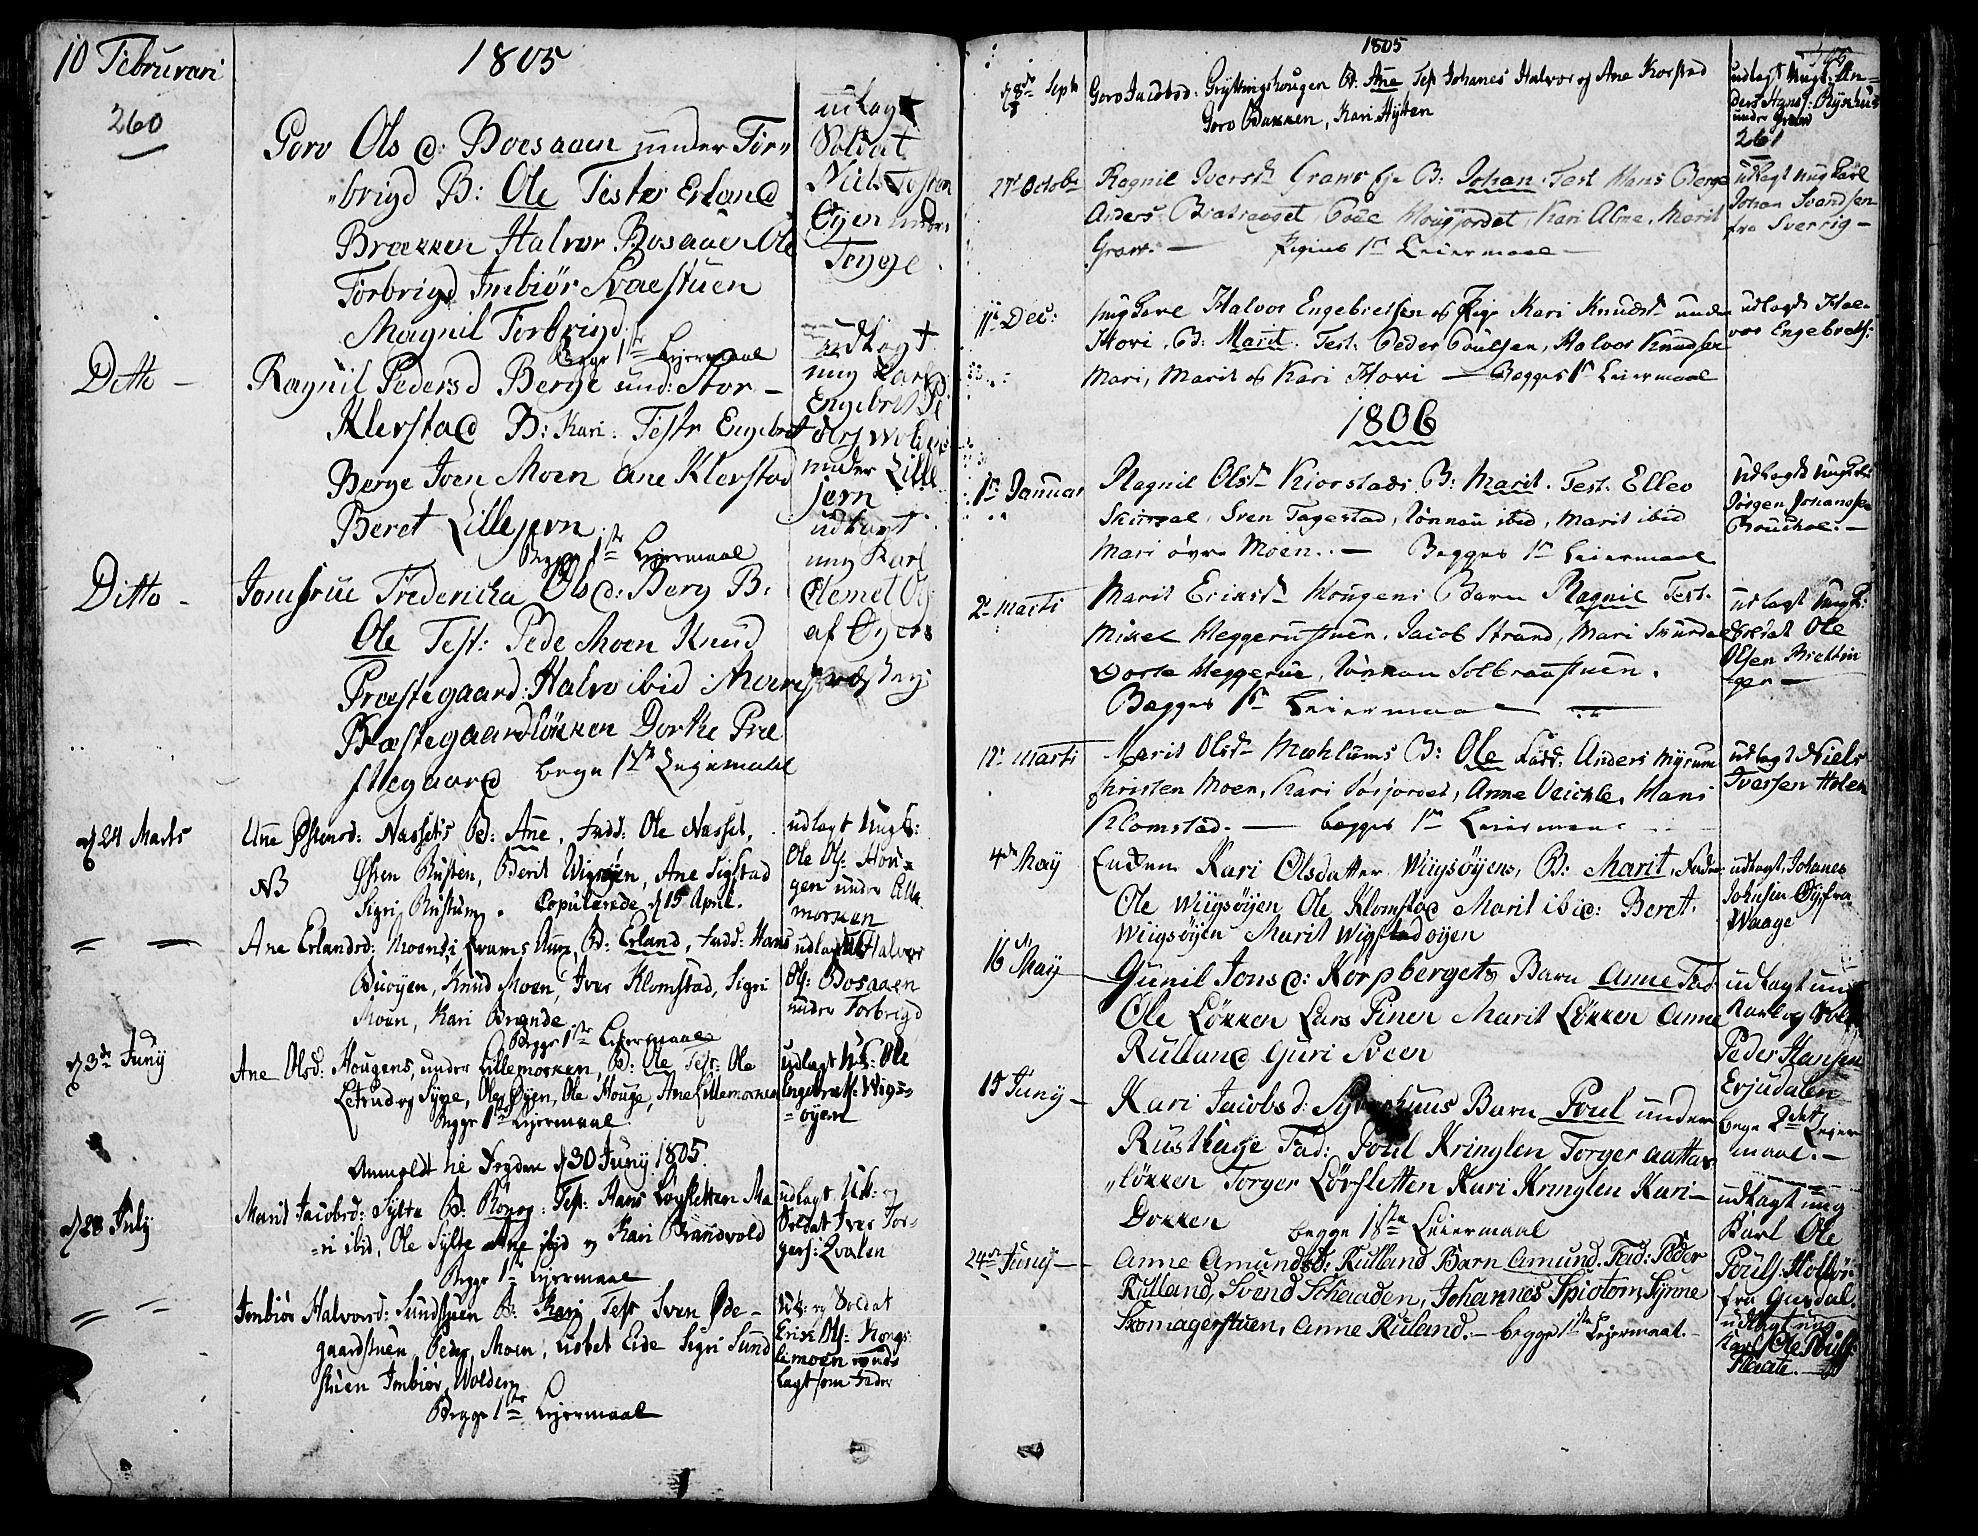 10 Februvari
260
1805
Goro Ols d: Boesaaen under For„
„brigd B: Ole Testr Erland
Brækken Halvor Bosaaen Ole
Forbrigd Imbiör Svaestuen
Magnil Forbrigd.
Begge 1ste Lejermaal
udlagt
Soldat
Niels
Øijen under
Ditto –
Ragnil Pedersd Berge und: Stor –
Klerstad B: Kari. Testr Engebret
Berge Joen Moen Ane Klerstad
Beret Lillejern
Begge 1ste Lejermaal
udlagt
ung Karl
Engebret
under Lille
jern
Ditto –
Jomfrue Fredericha Olsd: Berg B:
Ole Test: Pede Moen Knud
Præstegaard: Halvo ibid
Præstegaardløkken Dorthe Præ
stegaard begge 1ste Lejemaal
udlagt
ung Karl
Clemet
af Øyers
d 24 Marts
NB
Ane Østensd: Nassets B: Ane, Fadd: Ole Nasset,
Østen Rusten, Berit Wigsøjen, Ane Sigstad
Sigri Rustung. Copulerede d 15 April.
udlagt Ungk:
Ole Ols: Hou-
gen under Lille
morken
Ane Erlandsd: Moens, B: Erland, Fadd: Hans
Buöyen, Knud Moen, Iver Klomstad, Sigri
Moen, Kari Brænde.
Begge 1ste Lejermaal
udlagt Halvor
Ols: Bosaaen
under Forbrigd
d 3de Juny
Ane Olsd: Hougens, under Lillemorken, B: Ole Test: Ole
Letrud og Syne, Ole Öyen, Ole Houge, Ane Lillemorken
Begge 1ste Lejermaal.
udlagt Uk: Ole
Engebrets: Wigs-
öyen
Anmeldt he Fogden d 30 Juny 1805.
d 28 July
Marit Jacobsd: Sylte B: Rönog: Test: Hans Løvsletten Ma
ri ibid, Ole Sylte Ane ibid og Kari Brandvold
Begge 1ste Lejermaal
udlagt Uk: og
Soldat Iver Tor-
gers: Qvalen
Imbiör Halvorsd: Sundstuen B: Kari Testr Sven Øde-
gaardstuen, Peder Moen, Lisbet Eide Sigri Sund
stuen Imbiör Wolden
Begge 1ste Lejermaal
Uk: og Soldat
Erik Ols: Kongs
limoen
lagt som Fader
1805
d 8de Septr
Goro Jacobsd: Gryttingshougen B: Ane Test Johanes Halvor og Ane Korstad
Goro Bakken, Kari Hytten
udlagt Ungk: An-
ders Hans: Rykhus
under Graw
261
27d Octobr
Ragnil Iversdr Graws Eje B: Johan. Test Hans Berge
Anders Bratrænget Poul Hougjordet, Kari Alme, Marit
Graw. – Pigens 1ste Leiermaal –
udlagt ung Karl
Johan Svendsen
fra Sverrig –
11d Dec:
ung Karl Halvor Engebretsen og Pige Kari Knudsdr under
Hovi, B: Marit. Test: Peder Poulsen, Halvor Knudsen
Mari, Marit og Kari Hovi – Begges 1ste Leiermaal
udlagdt Hal-
vor Engebrets:
1806
1ste Januar
Ragnil Olsdr Kiorstads B: Marit. Test. Ellev
Skurdal, Sven Tagestad, Rönnau ibid, Marit ibid
Mari övre Moen. – Begges 1ste Leiermaal
Udlagdt Ungk:
Jörgen Johansen
2d Marti
Marit Eriksdr Hougens Barn Ragnil Test.
Mikel Heggerustuen, Jacob Strand, Mari Skurdal
Dorte Heggerue, Rönnau Solbraastuen.
Begges 1ste Leiermaal –
udlagt Ungk:
Soldat Ole
Olsen
12d Marti
Marit Olsdr Mæhlums B: Ole Fadd: Anders Myrum
Christen Moen, Kari Sörjordet, Anne Veickle, Hans
Klomstad. – begges 1ste Leiermaal
udlagt Niels
Iversen Holen
4de May
Enken Kari Olsdatter Wiigsöyens, B: Marit, Fadd
Ole Wiigsöyen Ole Klomstad Marit ibid: Beret.
Wiigsöyen Marit Wigstadöyen
udlagt Johanes
Johnsen Ø fra
Waage
16de May
Gunil Jonsd: Korpbergets Barn Anne Fad
Ole Løkken Lars Finen Marit Løkken Anne
Rulland Guri Sveen
udlagt ung
Karl og Sold
Peder Hansen
Erjudalen
bege 2det Leier
maal. –
15 Juny –
Kari Jacobsd: Barn Poul under
Rusthage Fad: Poul Kringlen Torger aattas
„løkken Torger Løvsletten Kari Kringlen Kari –
Dokken
begge 1ste Leiermaal
udlagt ung
Karl Ole
Pouls:
fra Gusdal.
24de Juny –
Anne Amundsd: Rulland Barn Amund. Fad: Peder
Rulland, Svend Schaaden, Johannes Spiotom, Synne
Skomagerstuen, Anne Ruland. – begge 1ste Lejermaal. –
udlagt ung
Karl Ole Pouls:
Flaate. –